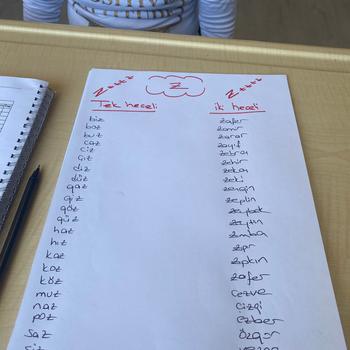 Z
Tek heceli
biz
boz
buz
caz
ciz
çiz
diz
düz
gaz
giz
göz
güz
haz
hız
kaz
koz
köz
muz
naz
poz
saz
siz
iki heceli
zafer
zamir
zarar
zayıf
zebra
zehir
zeka
zeki
zengin
zeplin
zeybek
zeytin
zımba
zıpkın
zafer
cezve
çizgi
ezber
özgür